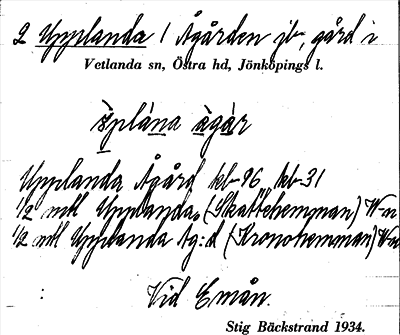 2 Upplanda / Ågården jb, gård i
Vetlanda sn, Östra hd, Jönköpings l.
Upplanda Ågård kb-96, kb-31
1/2 mtl Upplanda, (Skattehemman) W-n
1/2 mtl Upplanda Åg:d (Kronohemman) W-n
Vid Emån.
Stig Bäckstrand 1934.